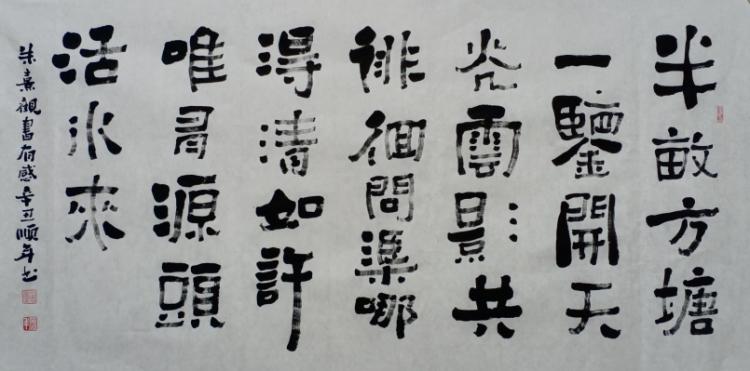 半畝方塘
一鑒開天
光雲影共
徘徊問渠哪
得清如許
唯有源頭
活水來
朱熹觀書有感辛丑顺年书